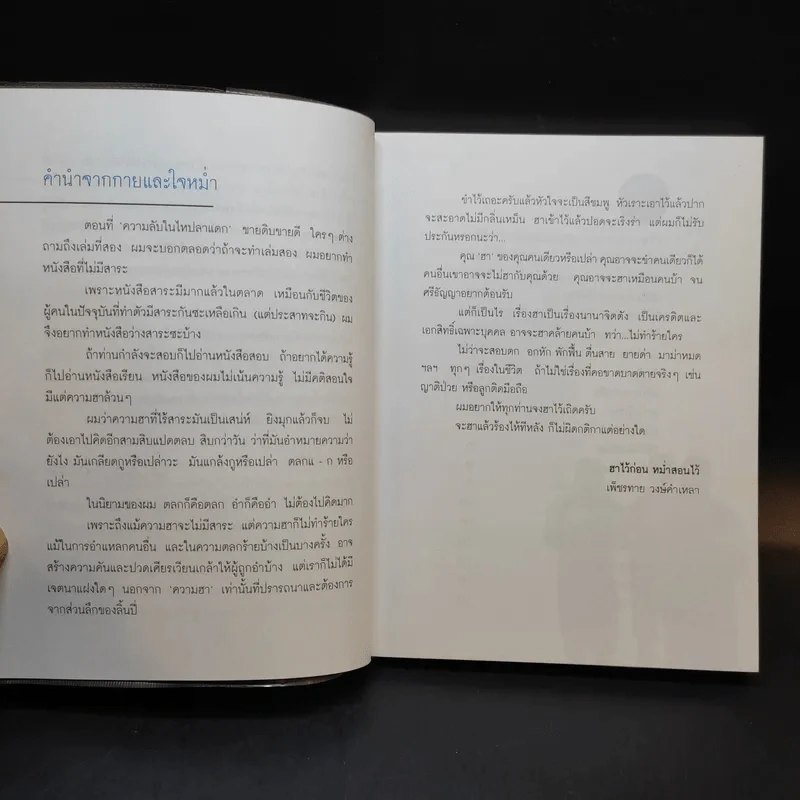 คำนำจากกายและใจหม่ำ
ตอนที่ 'ความลับในไหปลาแดก' ขายดิบขายดี ใครๆ ต่าง
ถามถึงเล่มที่สอง ผมจะบอกตลอดว่าถ้าจะทำเล่มสอง ผมอยากทำ
หนังสือที่ไม่มีสาระ
เพราะหนังสือสาระมีมากแล้วในตลาด เหมือนกับชีวิตของ
ผู้คนในปัจจุบันที่ทำตัวมีสาระกันซะเหลือเกิน (แต่ประสาทจะกิน) ผม
จึงอยากทำหนังสือว่างสาระซะบ้าง
ถ้าท่านกำลังจะสอบก็ไปอ่านหนังสือสอบ ถ้าอยากได้ความรู้
ก็ไปอ่านหนังสือเรียน หนังสือของผมไม่เน้นความรู้ ไม่มีคติสอนใจ
มีแต่ความฮาล้วนๆ
ผมว่าความฮาที่ไร้สาระมันเป็นเสน่ห์ ยิงมุกแล้วก็จบ ไม่
ต้องเอาไปคิดอีกสามสิบแปดตลบ สิบกว่าวัน ว่าที่มันอำหมายความว่า
ยังไง มันเกลียดกูหรือเปล่าวะ มันแกล้งกูหรือเปล่า ตลกแ - ก หรือ
เปล่า
ในนิยามของผม ตลกก็คือตลก อำก็คืออำ ไม่ต้องไปคิดมาก
เพราะถึงแม้ความฮาจะไม่มีสาระ แต่ความฮาก็ไม่ทำร้ายใคร
แม้ในการอำแหลกคนอื่น และในความตลกร้ายบ้างเป็นบางครั้ง อาจ
สร้างความคันและปวดเศียรเวียนเกล้าให้ผู้ถูกอำบ้าง แต่เราก็ไม่ได้มี
เจตนาแฝงใดๆ นอกจาก 'ความฮา' เท่านั้นที่ปรารถนาและต้องการ
จากส่วนลึกของลิ้นปี่
ขำไว้เถอะครับแล้วหัวใจจะเป็นสีชมพู หัวเราะเอาไว้แล้วปาก
จะสะอาดไม่มีกลิ่นเหม็น ฮาเข้าไว้แล้วปอดจะเริงร่า แต่ผมก็ไม่รับ
ประกันหรอกนะว่า...
คุณ 'ฮา' ของคุณคนเดียวหรือเปล่า คุณอาจจะขำคนเดียวก็ได้
คนอื่นเขาอาจจะไม่ฮากับคุณด้วย คุณอาจจะฮาเหมือนคนบ้า จน
ศรีธัญญาอยากต้อนรับ
แต่ก็เป็นไร เรื่องฮาเป็นเรื่องนานาจิตตัง เป็นเครดิตและ
เอกสิทธิ์เฉพาะบุคคล อาจจะฮาคล้ายคนบ้า ทว่า...ไม่ทำร้ายใคร
ไม่ว่าจะสอบตก อกหัก พักฟื้น ตื่นสาย ยายด่า มาม่าหมด
ฯลฯ ทุกๆ เรื่องในชีวิต ถ้าไม่ใช่เรื่องที่คอขาดบาดตายจริงๆ เช่น
ญาติป่วย หรือลูกติดมือถือ
ผมอยากให้ทุกท่านจงฮาไว้เถิดครับ
จะฮาแล้วร้องไห้ทีหลัง ก็ไม่ผิดกติกาแต่อย่างใด
ฮาไว้ก่อน หม่ำสอนไว้
เพ็ชรทาย วงษ์คำเหลา